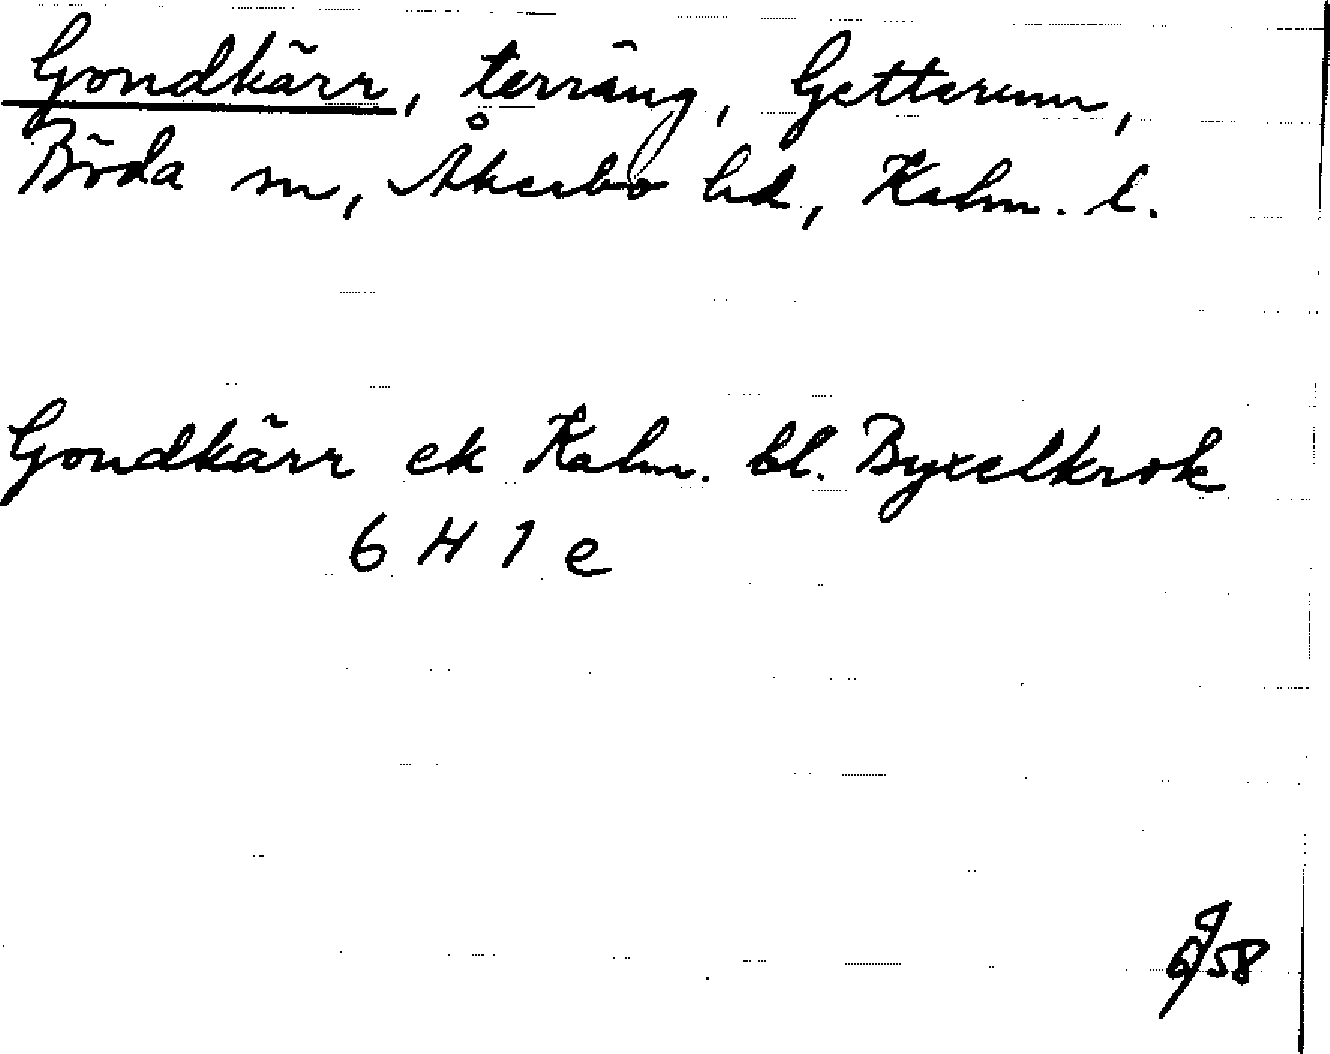 Gondkärr, terräng, Getterum,
Böda sn, Åkerbo hd, Kalm. l.
Gondkärr ek Kalm. bl. Byxelkrok
6 H 1 e
58